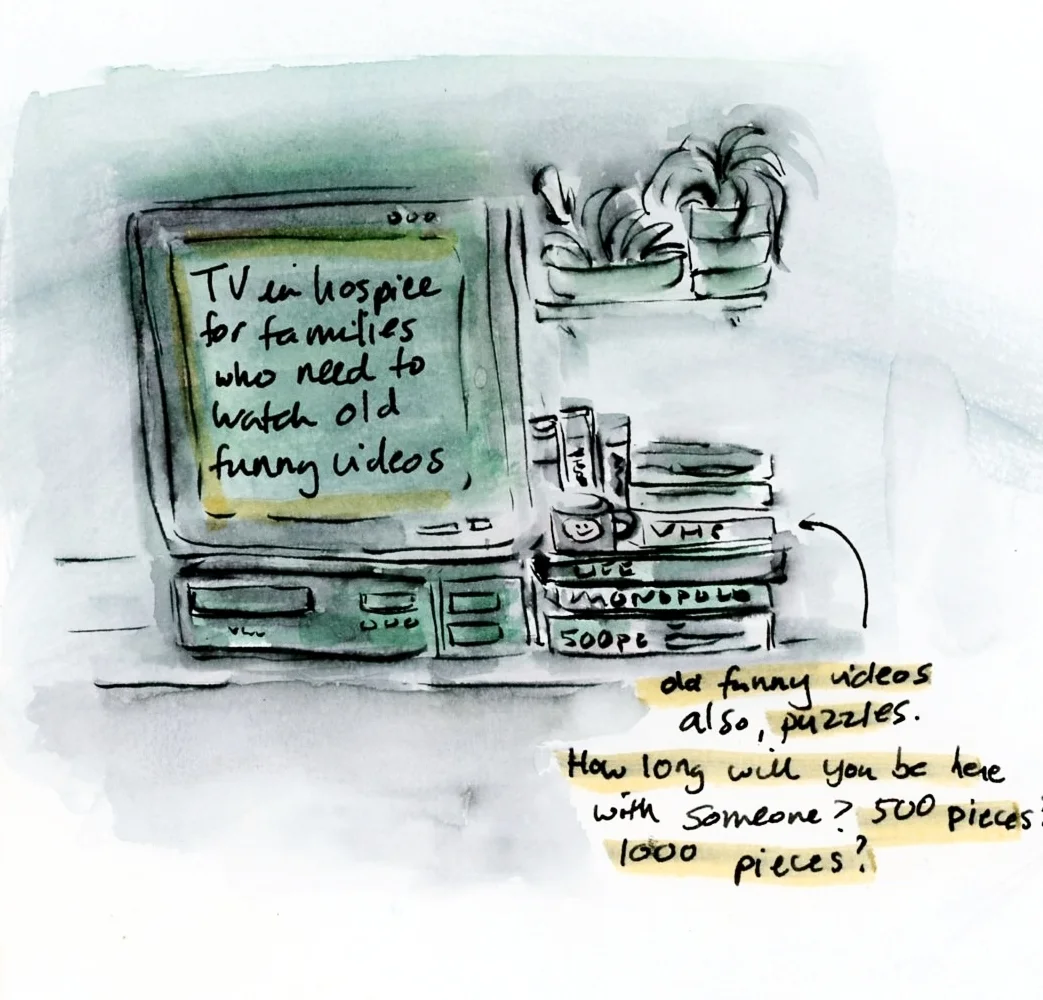 TV in hospice
for families
who need to
watch old
funny videos,
VHS
LIFE
MONOPOLY
500PC
old funny videos
also, puzzles.
How long will you be here
with someone? 500 pieces?
1000 pieces?